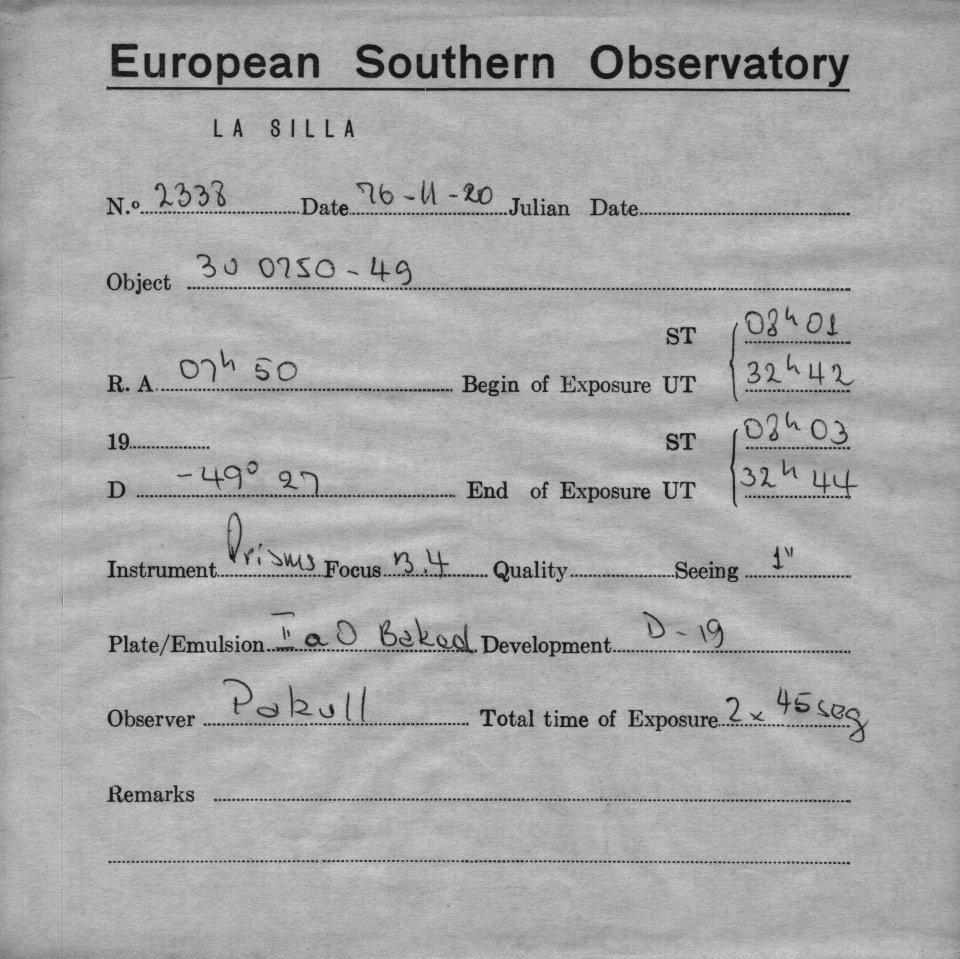 European Southern Observatory
LA SILLA
N.º 2338 Date 76-11-20 Julian Date
Object 3U 0750-49
ST 08h 01
R. A 07h 50 Begin of Exposure UT 32h 42
19 ST 08h 03
D -49° 27 End of Exposure UT 32h 44
Instrument Prisms Focus 13.4 Quality Seeing 1"
Plate/Emulsion IIaO Baked Development D-19
Observer Pakull Total time of Exposure 2x 45seg
Remarks